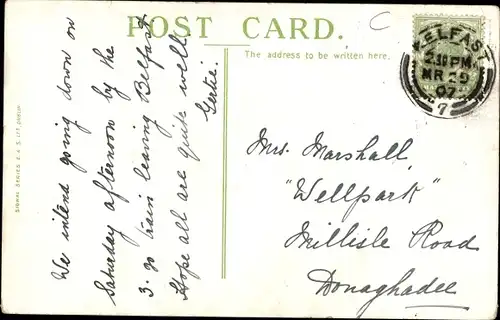 POST CARD.
The address to be written here.
We intend going down on
Saturday afternoon by the
3.30 train leaving Belfast
Hope all are quite well
Gertie.
Mrs. Marshall,
"Wellpark"
Millisle Road
Donaghadee
BELFAST
2.30 PM
MR 29
07
7